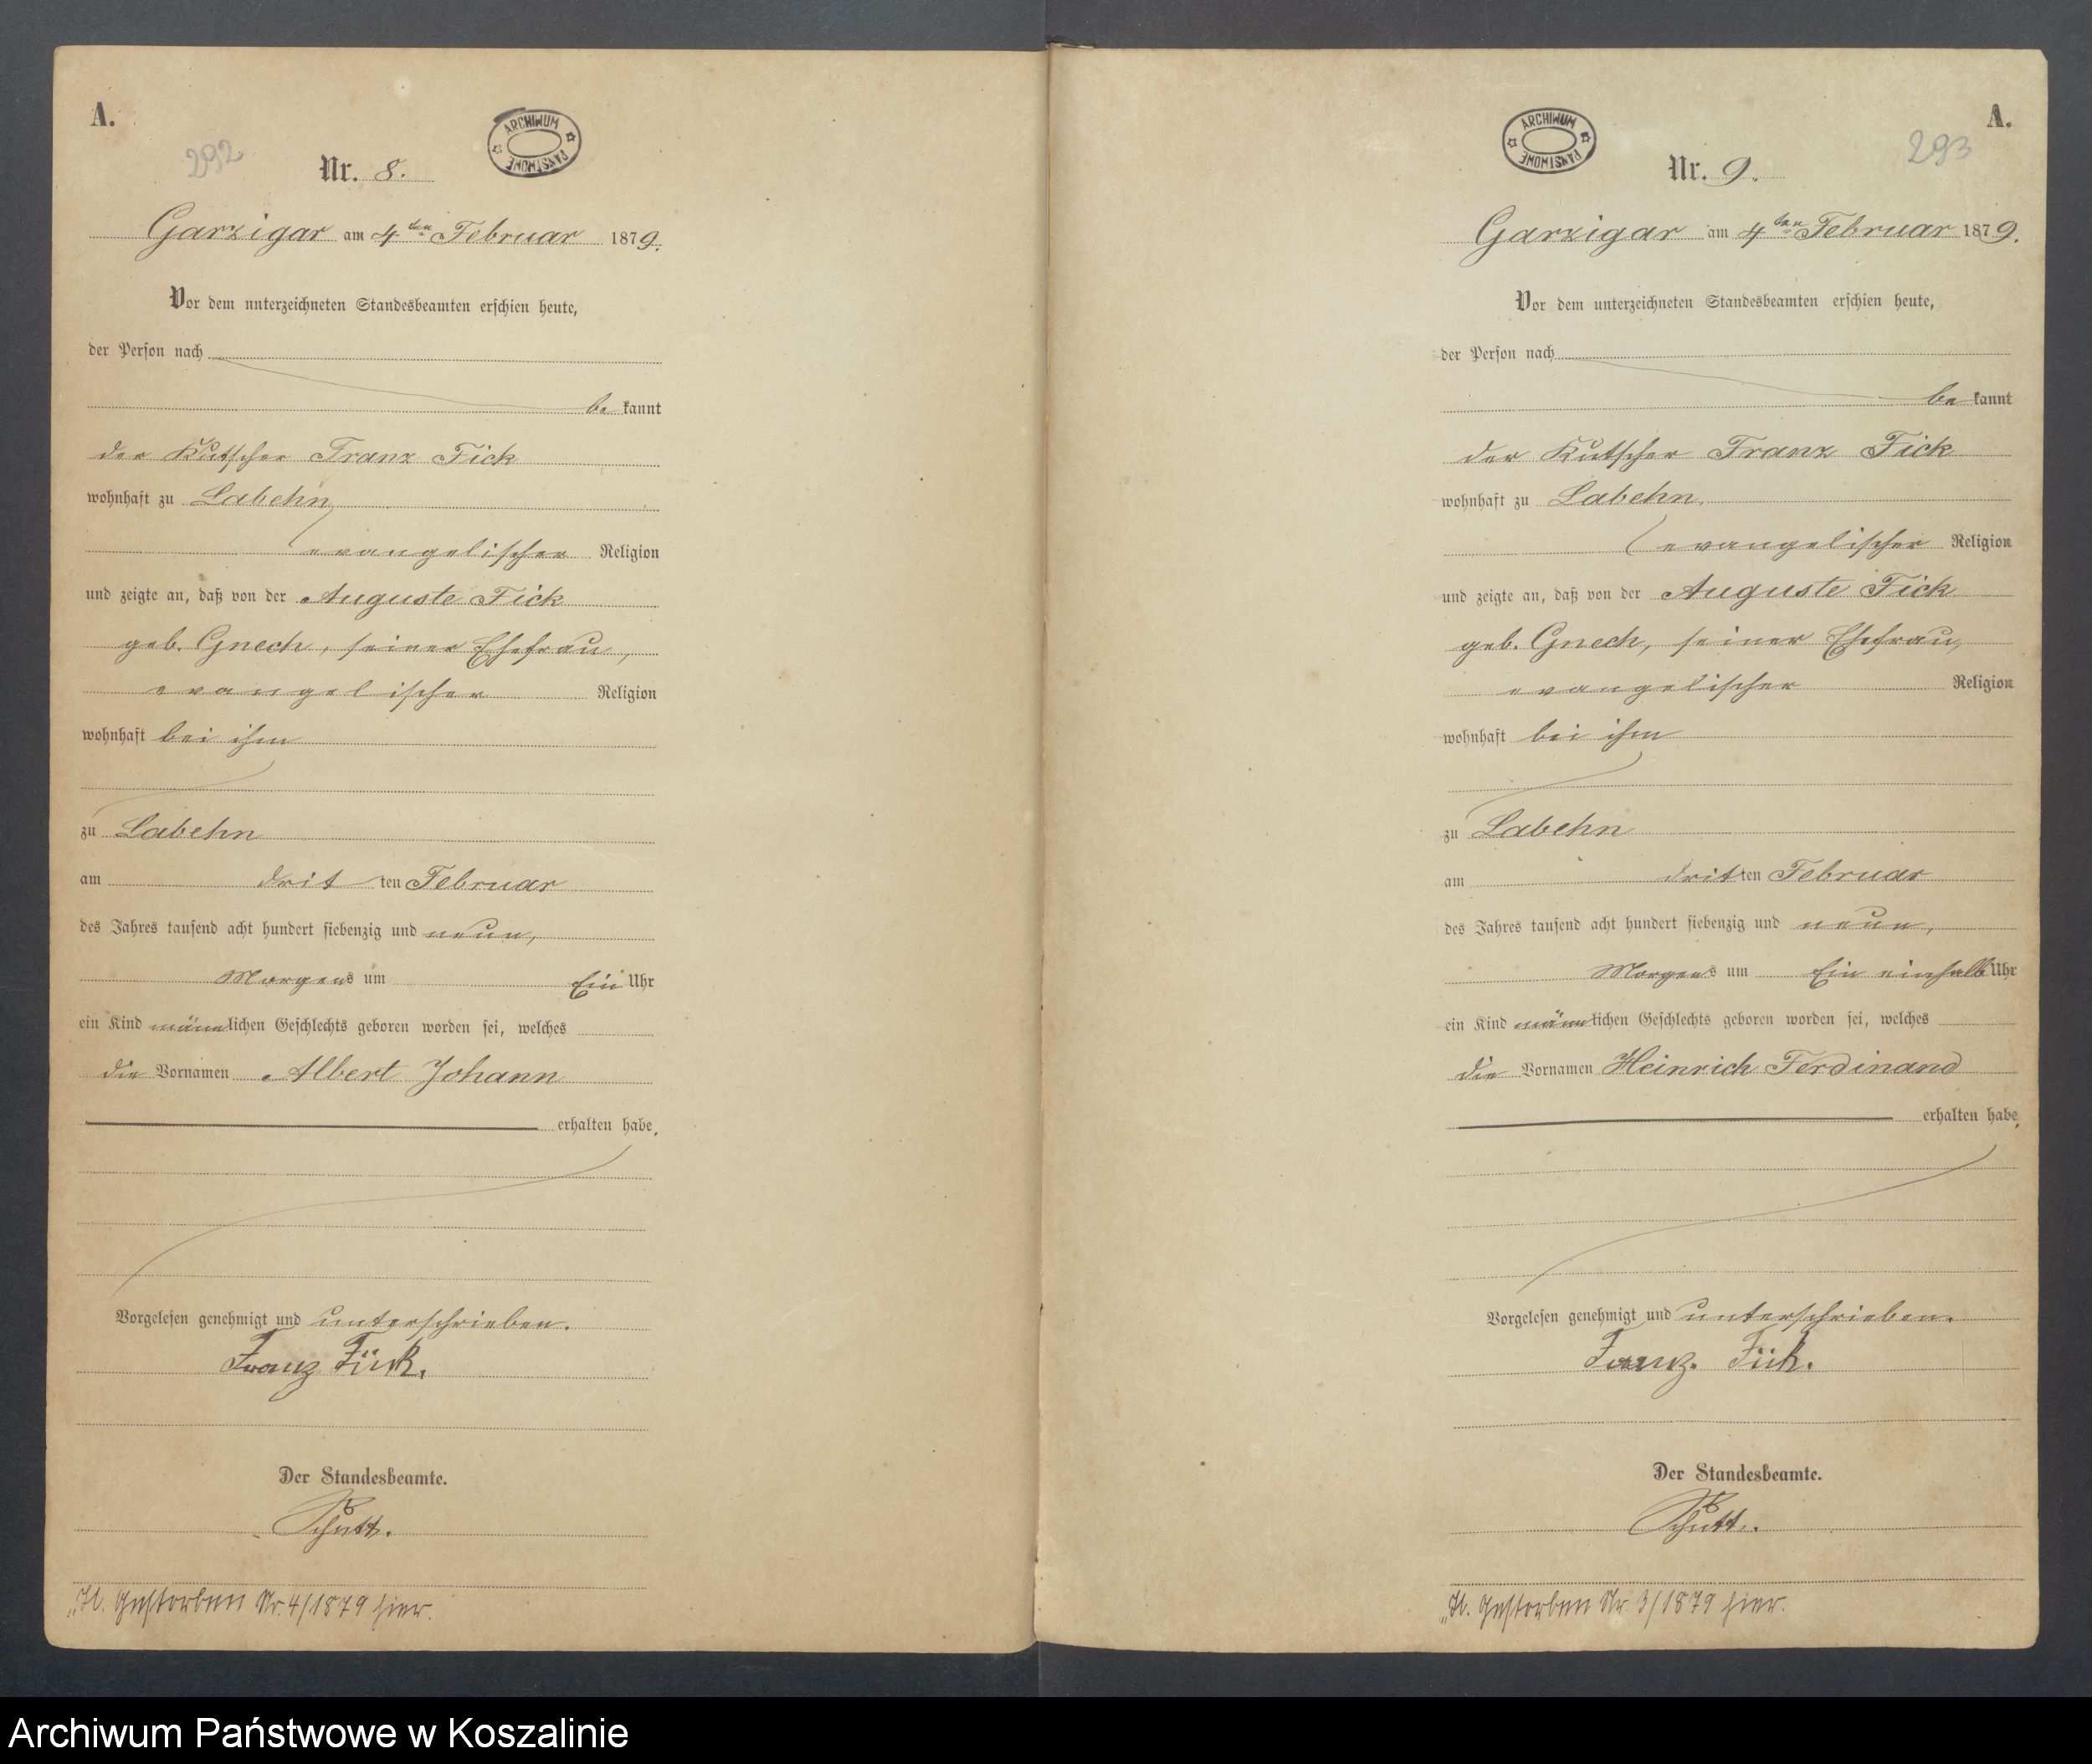 A.
292
ARCHIWUM PAŃSTWOWE
Nr. 8.
Garzigar am 4ten Februar 1879.
Vor dem unterzeichneten Standesbeamten erschien heute,
der Person nach
be kannt
der Kutscher Franz Fick
wohnhaft zu Labehn
evangelischer Religion
und zeigte an, daß von der Auguste Fick
geb. Gnech, seiner Ehefrau,
evangelischer Religion
wohnhaft bei ihm
zu Labehn
am dritten Februar
des Jahres tausend acht hundert siebenzig und neun,
Morgens um Ein Uhr
ein Kind männlichen Geschlechts geboren worden sei, welches
die Vornamen Albert Johann
erhalten habe.
Vorgelesen genehmigt und unterschrieben.
Franz Fick.
Der Standesbeamte.
Schütt.
Gestorben Nr. 4/1879 hier.
A.
293
ARCHIWUM PAŃSTWOWE
Nr. 9.
Garzigar am 4ten Februar 1879.
Vor dem unterzeichneten Standesbeamten erschien heute,
der Person nach
be kannt
der Kutscher Franz Fick
wohnhaft zu Labehn
evangelischer Religion
und zeigte an, daß von der Auguste Fick
geb. Gnech, seiner Ehefrau,
evangelischer Religion
wohnhaft bei ihm
zu Labehn
am dritten Februar
des Jahres tausend acht hundert siebenzig und neun,
Morgens um Ein einhalb Uhr
ein Kind männlichen Geschlechts geboren worden sei, welches
die Vornamen Heinrich Ferdinand
erhalten habe.
Vorgelesen genehmigt und unterschrieben.
Franz. Fick.
Der Standesbeamte.
Schütt.
Gestorben Nr. 3/1879 hier.
Archiwum Państwowe w Koszalinie